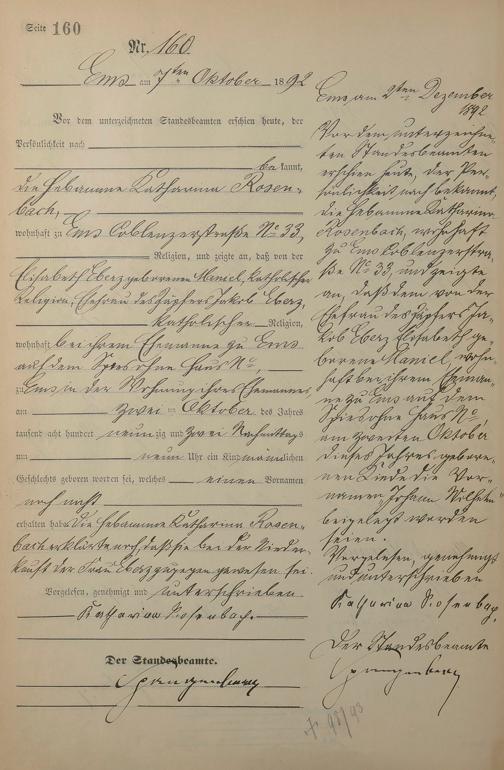 Seite 160
Nr. 160.
Ems am 7ten Oktober 1892
Vor dem unterzeichneten Standesbeamten erschien heute, der
Persönlichkeit nach
bekannt,
die Hebamme Katharina Rosen-
bach,
wohnhaft zu Ems Coblenzerstraße No 33,
Religion, und zeigte an, daß von der
Elisabeth Eberz geborenen Maniel, katholischer
Religion, Ehefrau des Jakob Eberz,
katholischer Religion,
wohnhaft bei ihrem Ehemanne zu Ems
auf dem Spies ohne Haus No,
zu Ems in der Wohnung ihres Ehemannes
am zwei ten Oktober des Jahres
tausend acht hundert neunzig und zwei Nachmittags
um neun Uhr ein Kind männlichen
Geschlechts geboren worden sei, welches einen Vornamen
noch nicht
erhalten habe. Die Hebamme Katharina Rosen-
bach erklärte noch, daß sie bei der Nieder-
kunft der Frau Eberz zugegen gewesen sei.
Vorgelesen, genehmigt und unterschrieben
Katharina Rosenbach.
Der Standesbeamte.
Spangenberg
Ems, am 2ten Dezember
1892
Vor dem unterzeichne-
ten Standesbeamten
erschien heute, der Per-
sönlichkeit nach bekannt,
die Hebamme Katharina
Rosenbach, wohnhaft
zu Ems Coblenzerstra-
ße No 33, und zeigte
an, daß dem von der
Ehefrau des Ja-
kob Eberz Elisabeth ge-
borene Maniel, wohn-
haft bei ihrem Eheman-
ne zu Ems auf dem
Spies ohne Haus No
am zweiten Oktober
dieses Jahres gebore-
nen Kinde die Vor-
namen Johann Wilhelm
beigelegt worden
seien.
Vorgelesen, genehmigt
und unterschrieben
Katharina Rosenbach.
Der Standesbeamte
Spangenberg